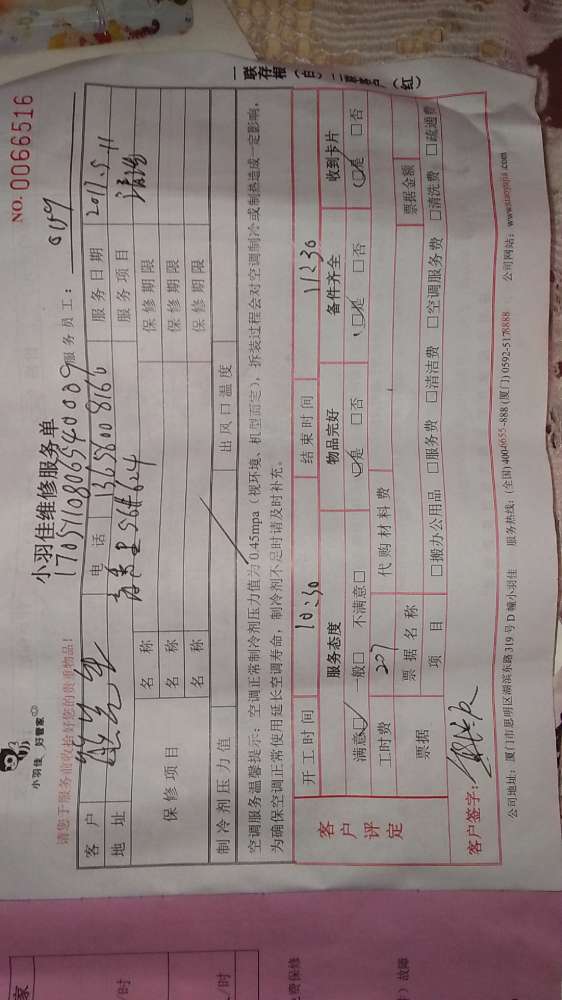 一联存根（白）二联客户（红）
小羽佳 好管家
小羽佳维修服务单
NO. 0066516
1705110806540009
服务员工： 0159
请您于服务前收拾好您的贵重物品！
客户 电话 13656008166 服务日期 2017.5.11
地址 56#624 服务项目 清洗
保修项目 名称 保修期限
名称 保修期限
名称 保修期限
制冷剂压力值 出风口温度
空调服务温馨提示：空调正常制冷剂压力值为0.45mpa（视环境、机型而定），拆装过程会对空调制冷或制热造成一定影响，
为确保空调正常使用延长空调寿命，制冷剂不足时请及时补充。
客户评定 开工时间 10:30 结束时间 11:30
服务态度 物品完好 备件齐全 收到卡片
满意□ 一般□ 不满意□ □是 □否 □是 □否 □是 □否
工时费 207 代购材料费
票据 票据名称 票据金额
项目 □搬办公用品 □服务费 □清洁费 □空调服务费 □清洗费 □疏通费
客户签字：
公司地址：厦门市思明区湖滨东路319号D幢小羽佳 服务热线：(全国) 4004655-888 (厦门) 0592-5178888 公司网站：www.xiaoyujia.com
/时
/时